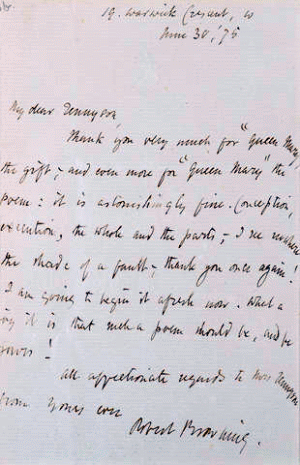 19. Warwick Crescent, W
June 30, '75
My dear Tennyson,
Thank you very much for "Queen Mary,"
the gift, – and even more for "Queen Mary" the
poem: it is astonishingly fine. Conception,
execution, the whole and the parts, – I see nowhere
the shade of a fault, – thank you once again!
I am going to begin it afresh now. What a
joy it is that such a poem should be, and be
yours!
All affectionate regards to Mrs Tennyson
from yours ever
Robert Browning.